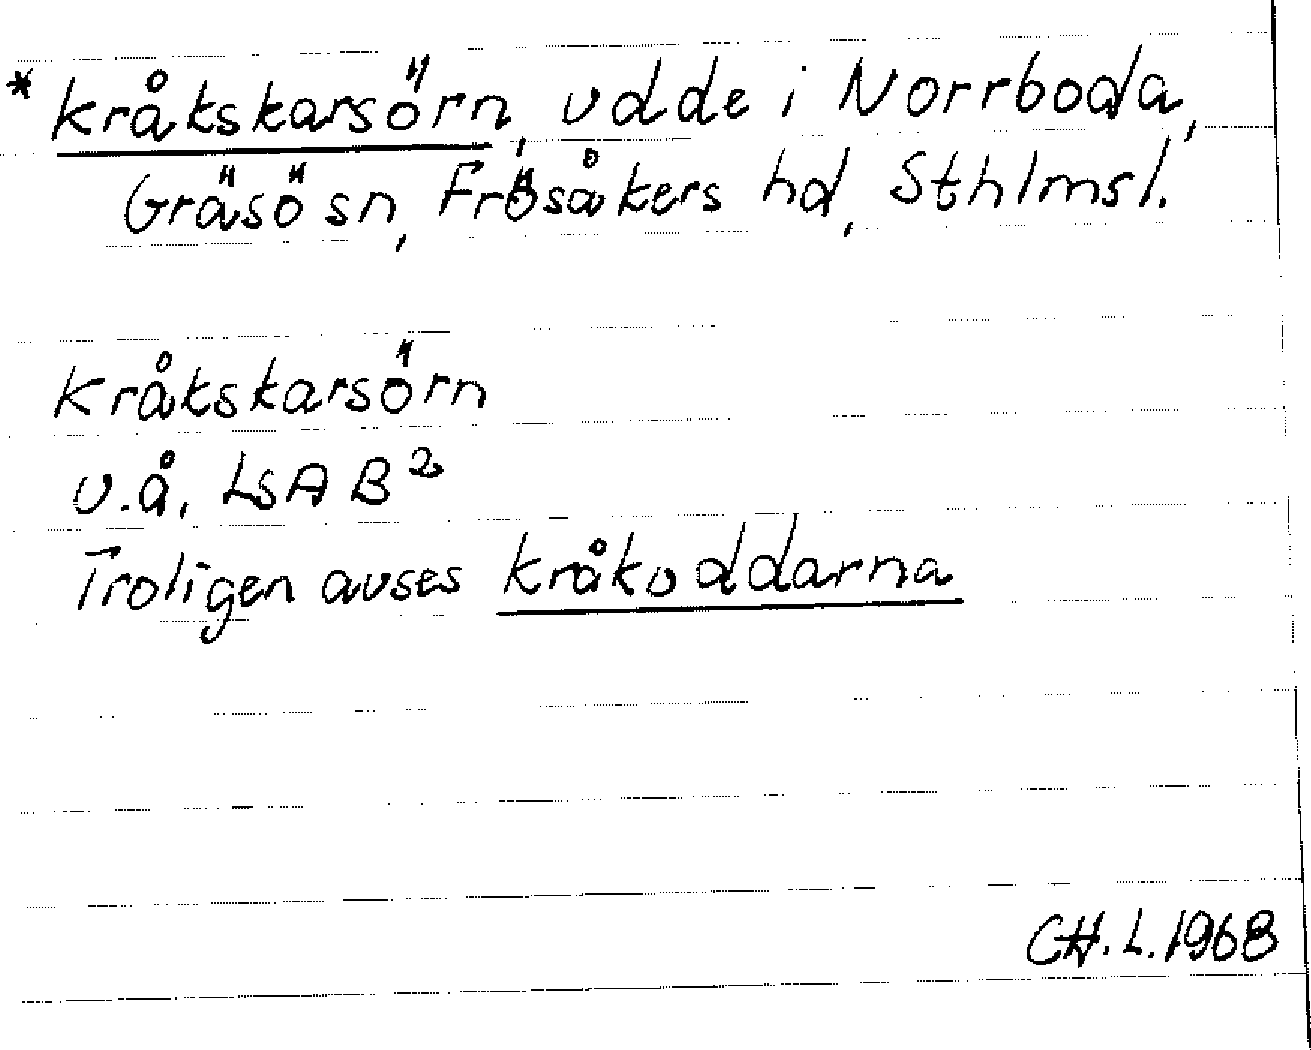 * Kråkskarsörn, udde i Norrboda,
Gräsö sn, Frösåkers hd, Sthlmsl.
Kråkskarsörn
u.å. LSA B²
Troligen avses Kråkuddarna
CH.L.1968